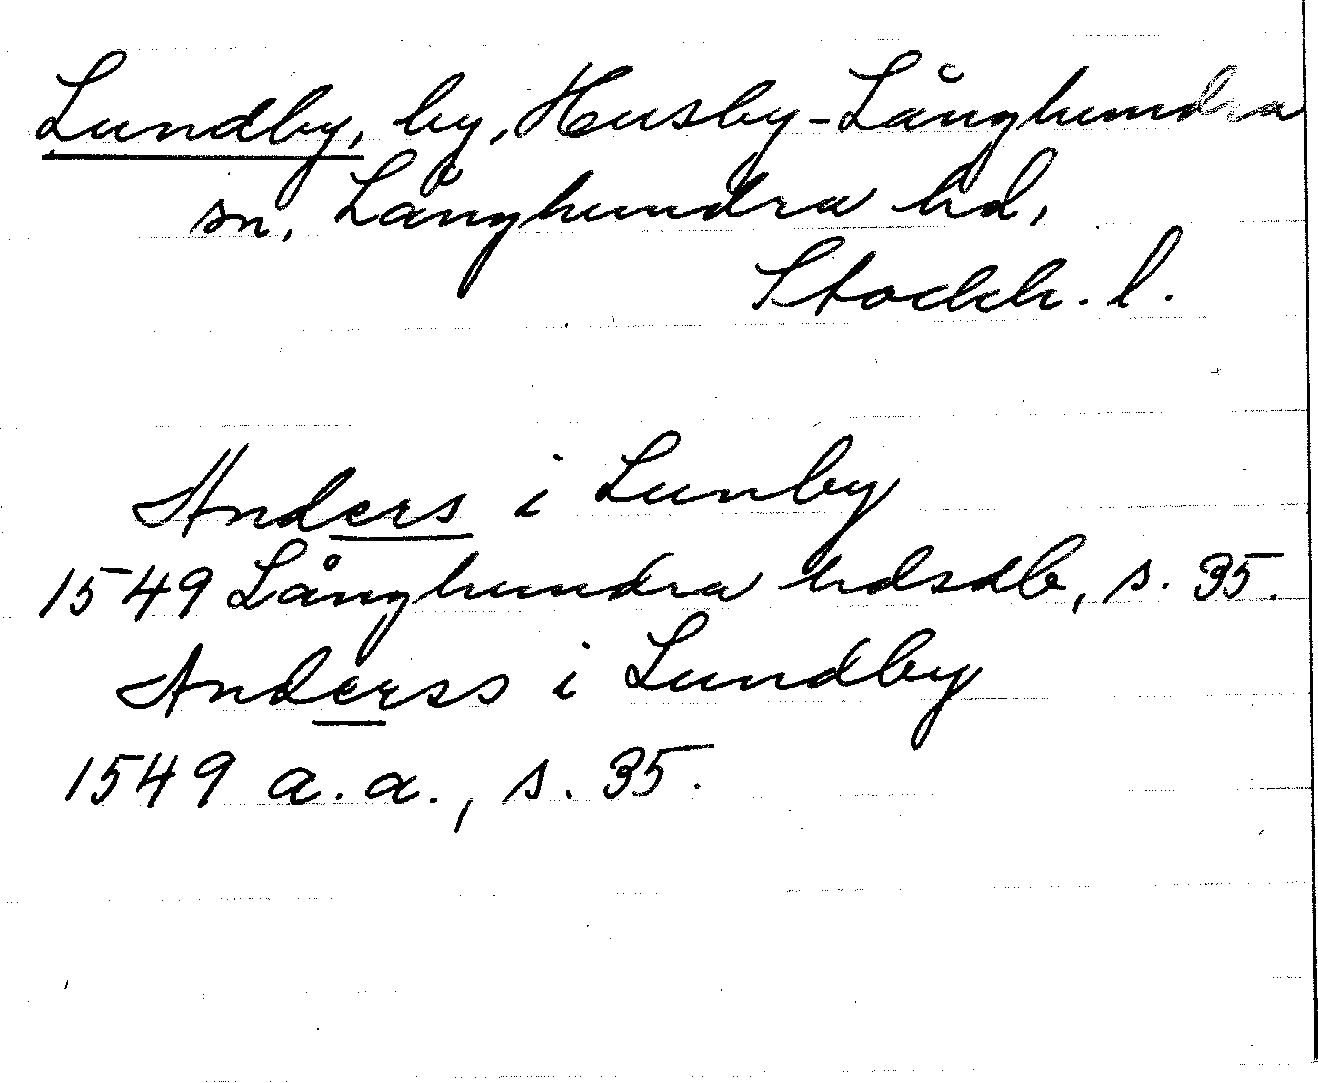 Lundby, by, Husby-Långhundra
sn, Långhundra hd,
Stockh. l.
Anders i Lunby
1549 Långhundra hdsdb, s. 35.
Anderss i Lundby
1549 a. a., s. 35.